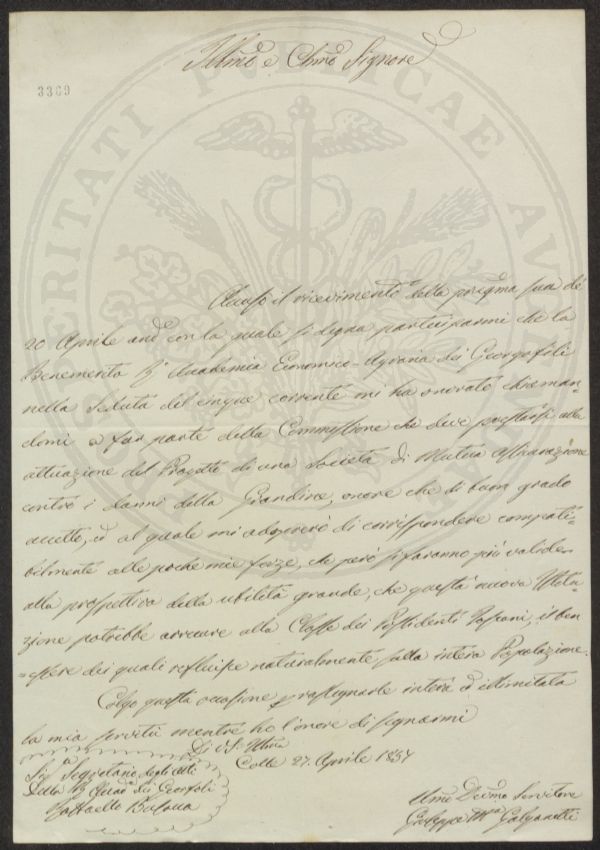 Illmo e Chmo Signore
3369
PROSPERITATI PVBLICAE AVGENDAE
Accuso il ricevimento della pregma sua di
20 Aprile andte con la quale si degna parteciparmi che la
Benemerita Re Accademia Economico-Agraria dei Georgofili
nella Seduta del cinque corrente mi ha onorato chiaman-
domi a far parte della Commissione che deve prestarsi alla
attuazione del Progetto di una Società di Mutua assicurazione
contro i danni della Grandine, onore che di buon grado
accetto, ed al quale mi adopererò di corrispondere compati-
bilmente alle poche mie forze, che però si faranno più valide
alla prospettiva della utilità grande, che questa nuova Istitu-
zione potrebbe arrecare alla Classe dei Possidenti Toscani, il ben
=essere dei quali refluisce naturalmente sulla intera Popolazione.
Colgo questa occasione p rassegnarle intera ed illimitata
la mia servitù mentre ho l'onore di segnarmi
Di VS. Illma
Colle 27. Aprile 1837
Sigr Segretario degli Atti
della R. Accad. dei Georgofili
Raffaello
Umo Devmo Servitore
Giuseppe Ma Galganetti